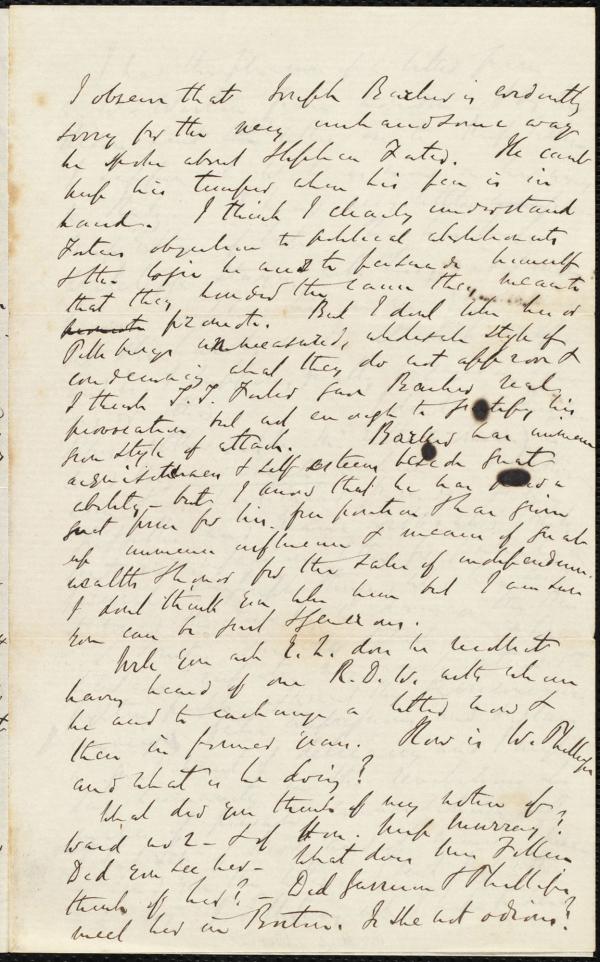 I observe that Joseph Barker is evidently
sorry for the very unhandsome way
he spoke about Stephen Foster. He cant
keep his temper when his pen is in
hand. I think I clearly understand
Fosters objection to political abolitionists
& the logic he used to persuade himself
that they hindered the cause they meant to
promote. But I dont like his or
Pillsburys unmeasured, wholesale style of
condemning what they do not approve &
I think S. S. Foster gave Barker real
provocation but not enough to justify his
own style of attack. Barker has immense
acquisitiveness & self esteem beside great
ability – but I know that he has paid a
great price for his free position & has given
up immense influence & means of great
wealth & honor for the sake of independence.
I dont think you like him but I am sure
you can be just & generous.
Will you ask E. Q. does he recollect
having heard of one R. D. W. with whom
he used to exchange a letter now &
then in former years. How is W. Phillips
and what is he doing?
What did you think of my notice of
ward no 2 – & of Hon. Miss Murray?
Did you see her – What does Mrs Follen
think of her? – Did Garrison & Phillips
meet her in Boston. Is she not odious?